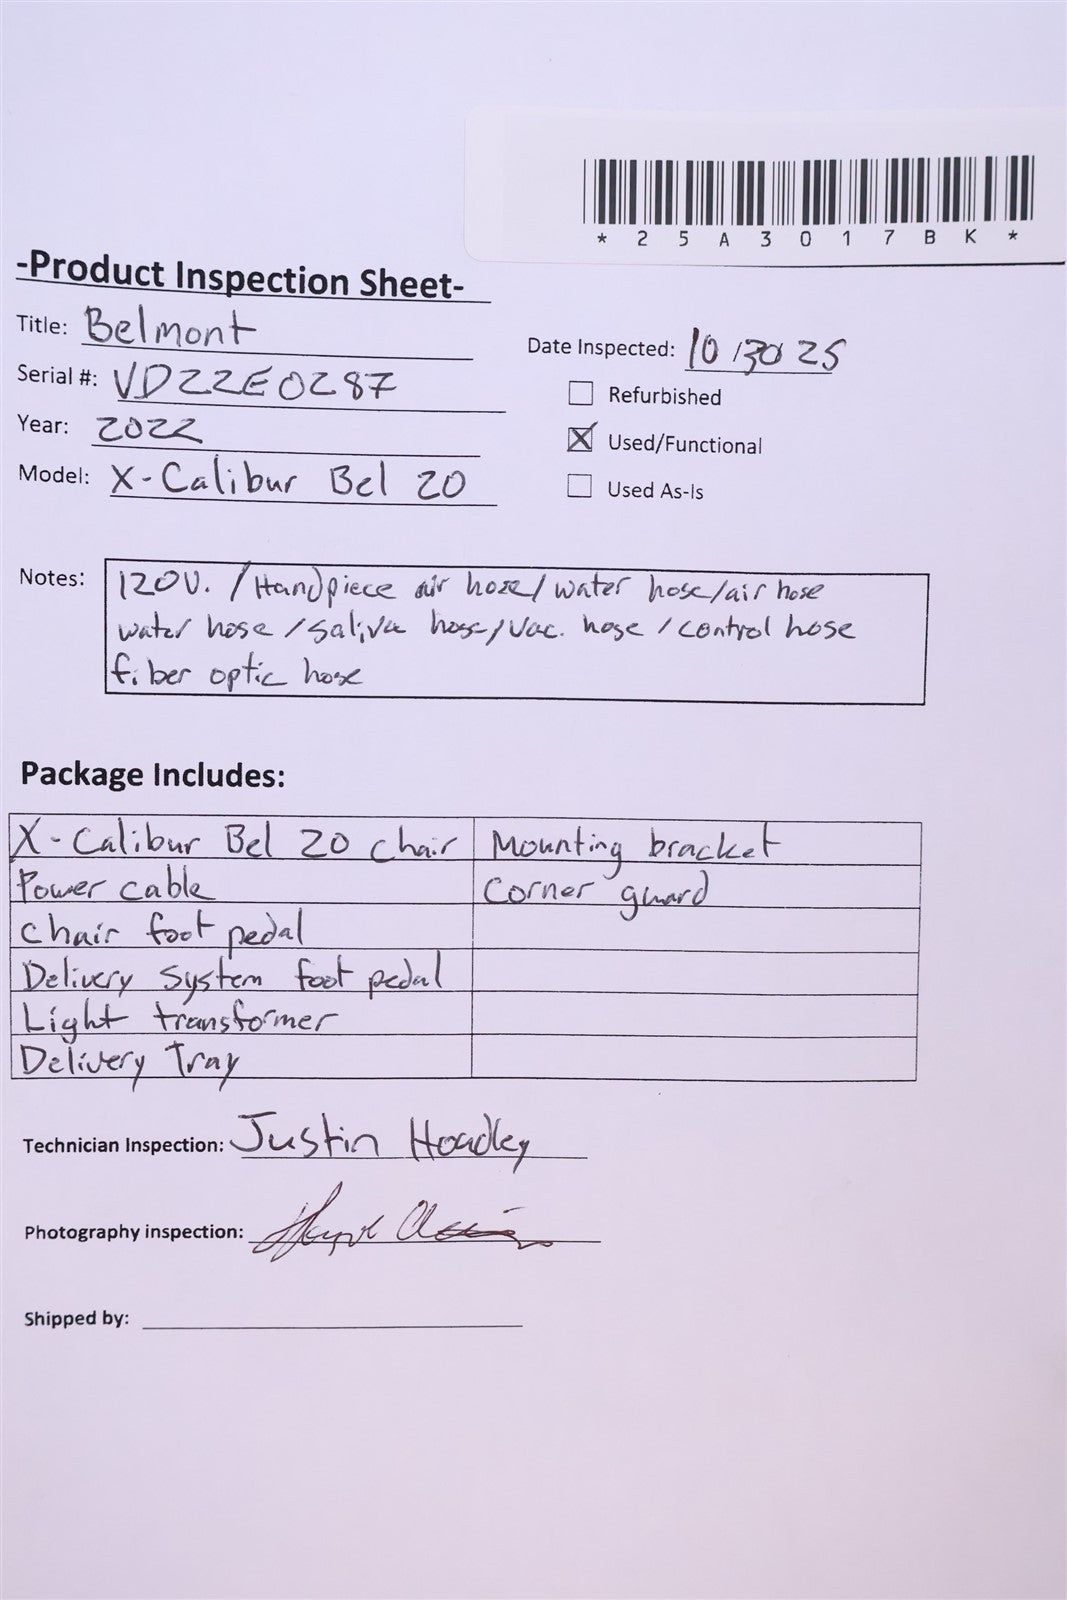 *25A3017BK*
-Product Inspection Sheet-
Title: Belmont
Date Inspected: 10/30 25
Serial #: VD22E0287
Refurbished
Year: 2022
Used/Functional
Model: X-Calibur Bel 20
Used As-Is
Notes: 120V. / Handpiece air hose / water hose / air hose
water hose / saliva hose / vac. hose / control hose
fiber optic hose
Package Includes:
X-Calibur Bel 20 chair Mounting bracket
Power cable Corner guard
Chair foot pedal
Delivery system foot pedal
Light transformer
Delivery Tray
Technician Inspection: Justin Hoadley
Photography inspection:
Shipped by: